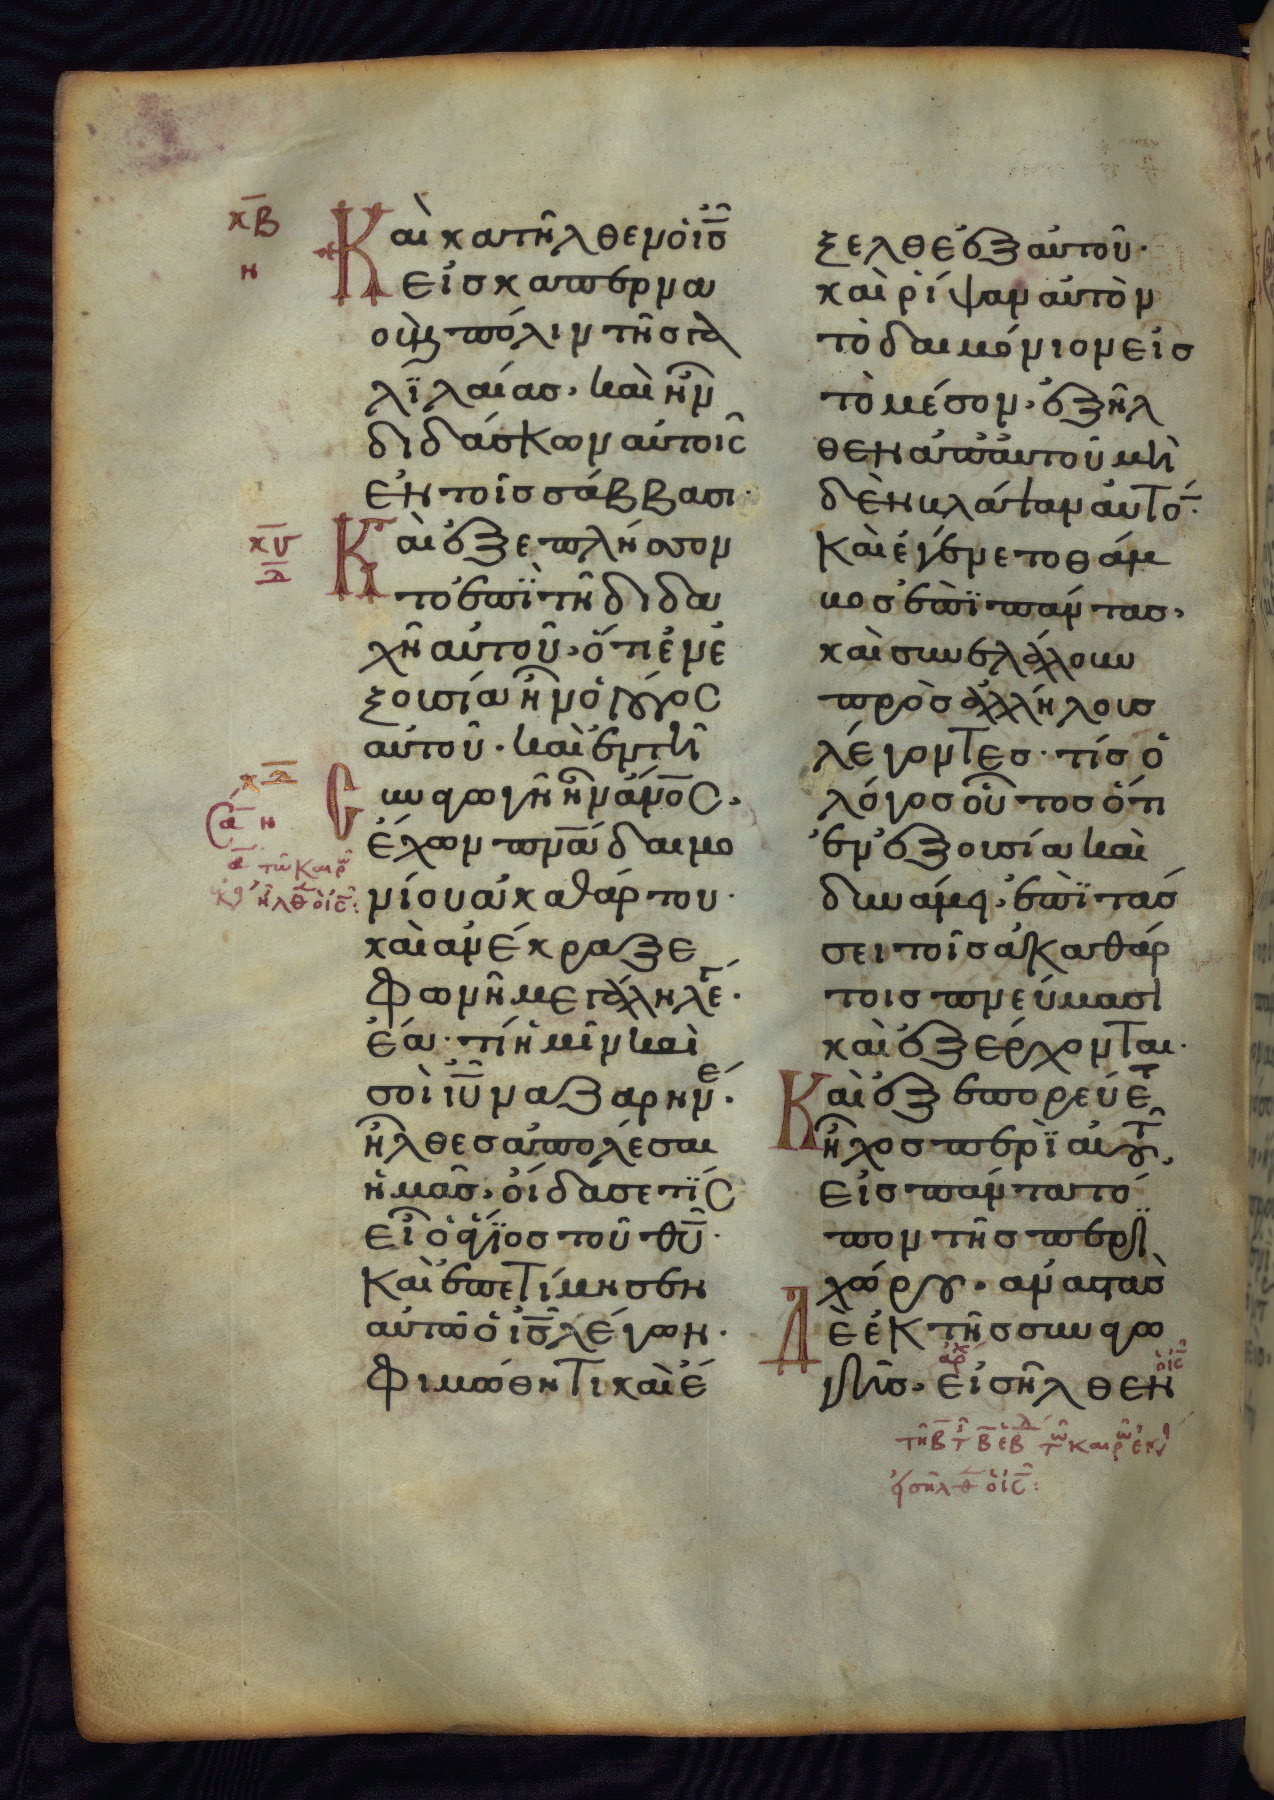 κ̅β̅
η
Καὶ κατῆλθεν ὁ ι̅ς̅
εἰς καπερνα
οὺμ πόλιν τῆς γα
λϊλαίας· καὶ ἦν
διδάσκων αὐτοῖς
ἐν τοῖς σάββασι·
Καὶ ἐξεπλήσσον
το ἐπὶ τῆ διδα
χῆ αὐτοῦ· ὅτι ἐν ἐ
ξουσία ἦν ὁ λόγος
αὐτοῦ· καὶ ἐν τῆ
συναγωγῆ ἦν α̅ν̅ο̅ς̅·
ἔχων π̅ν̅α̅ δαιμο
νίου ἀκαθάρτου·
καὶ ἀνέκραξε
φωνῆ μεγάλη λέγ·
ἔα· τί ἡμῖν καὶ
σοὶ ι̅υ̅ ναζαρηνέ·
ἦλθες ἀπολέσαι
ἡμᾶς· οἶδα σε τίς
εἶ ὁ ἅγϊος τοῦ θ̅υ̅·
Καὶ ἐπετίμησεν
αὐτῶ ὁ ι̅ς̅ λέγων·
Φιμώθητι καὶ ἔ
ξελθε ἐξ αὐτοῦ·
καὶ ῥίψαν αὐτὸν
τὸ δαιμόνιον εἰς
τὸ μέσον· ἐξῆλ
θεν ἀπ' αὐτοῦ μη
δὲν βλάψαν αὐτό·
Καὶ ἐγένετο θάμ
βος ἐπὶ πάντας·
καὶ συνελάλουν
πρὸς ἀλλήλους
λέγοντες· τίς ὁ
λόγος οὗτος ὅτι
ἐν ἐξουσία καὶ
δυνάμει· ἐπϊτάσ
σει τοῖς ἀκαθάρ
τοις πνεύμασι
καὶ ἐξέρχονται·
Καὶ ἐξεπορεύετ
ἦχος περὶ αὐτοῦ·
εἰς πάντα τό
πον τῆς περι
χώρου· ἀναστὰς
Δὲ ἐκ τῆς συναγω
γῆς· εἰσῆλθεν